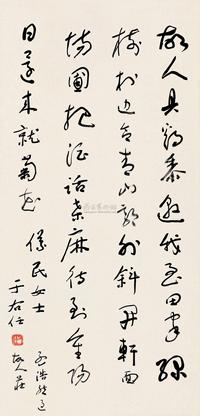 故人具鷄黍邀我至田家綠
樹村邊合青山郭外斜開軒面
場圃把酒話桑麻待到重陽
日還來就菊花
民女士
于右任
孟浩然過
故人莊